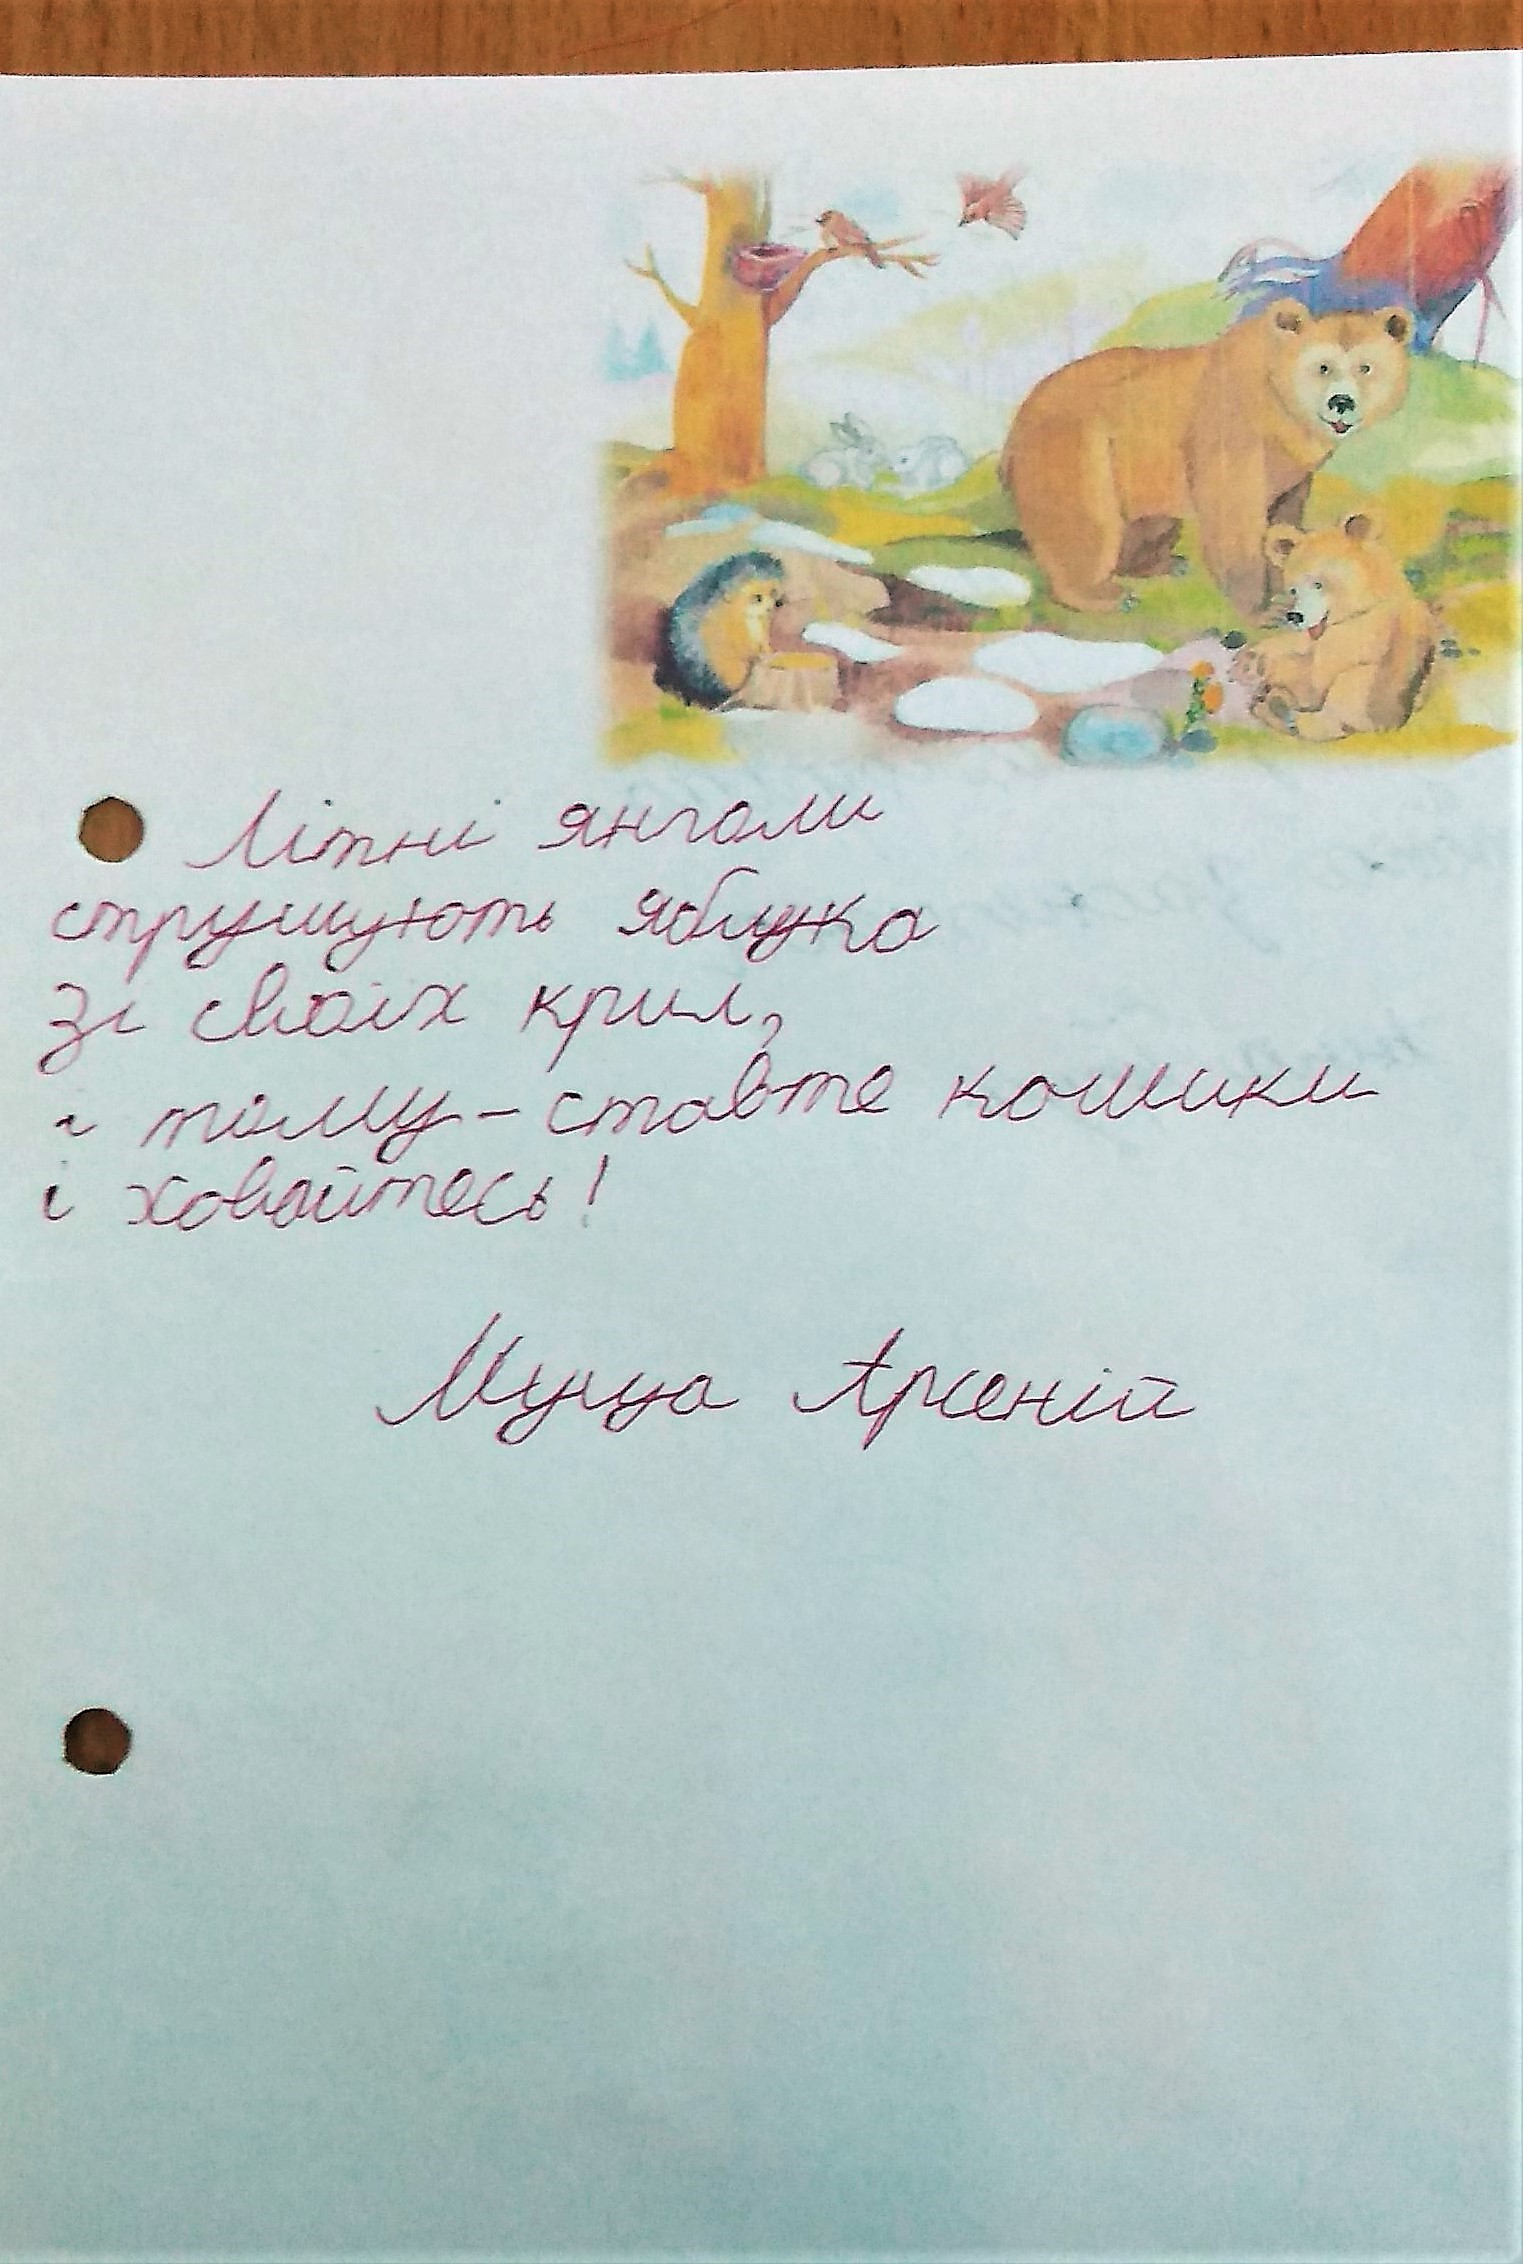 Літні янголи
струшують яблука
зі своїх крил,
і тому - ставте кошики
і ховайтесь!
Муца Арсеній